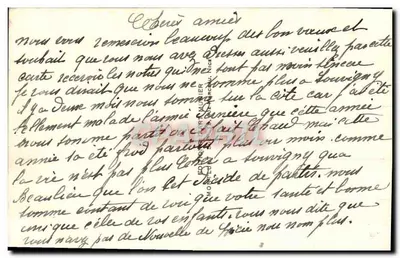 Chers amies
nous vous remercion beaucoup des bon voeux et
souhait que vous nous avez Dreses aussi veuillez par cette
carte recevoir les notres qui ne sont pas moin sincere
je vous disait que nous ne somme plus a Souvigny
il y a Deux mois nous sommes sur la côte car j'ai été
tellment malade l'année Dernière que cette année
nous somme parti ou il fait chaud mai cette
annie sa été froid partout plus ou moin comme
la vie n'est pas plus cher a Souvigny qua
Beaulieu que l'on set Décide de partir. nous
somme contant de voir que votre santé et bonne
insi que celle de vos enfants. vous nous dite que
vous navez pas de Nouvelle de nous non plus.